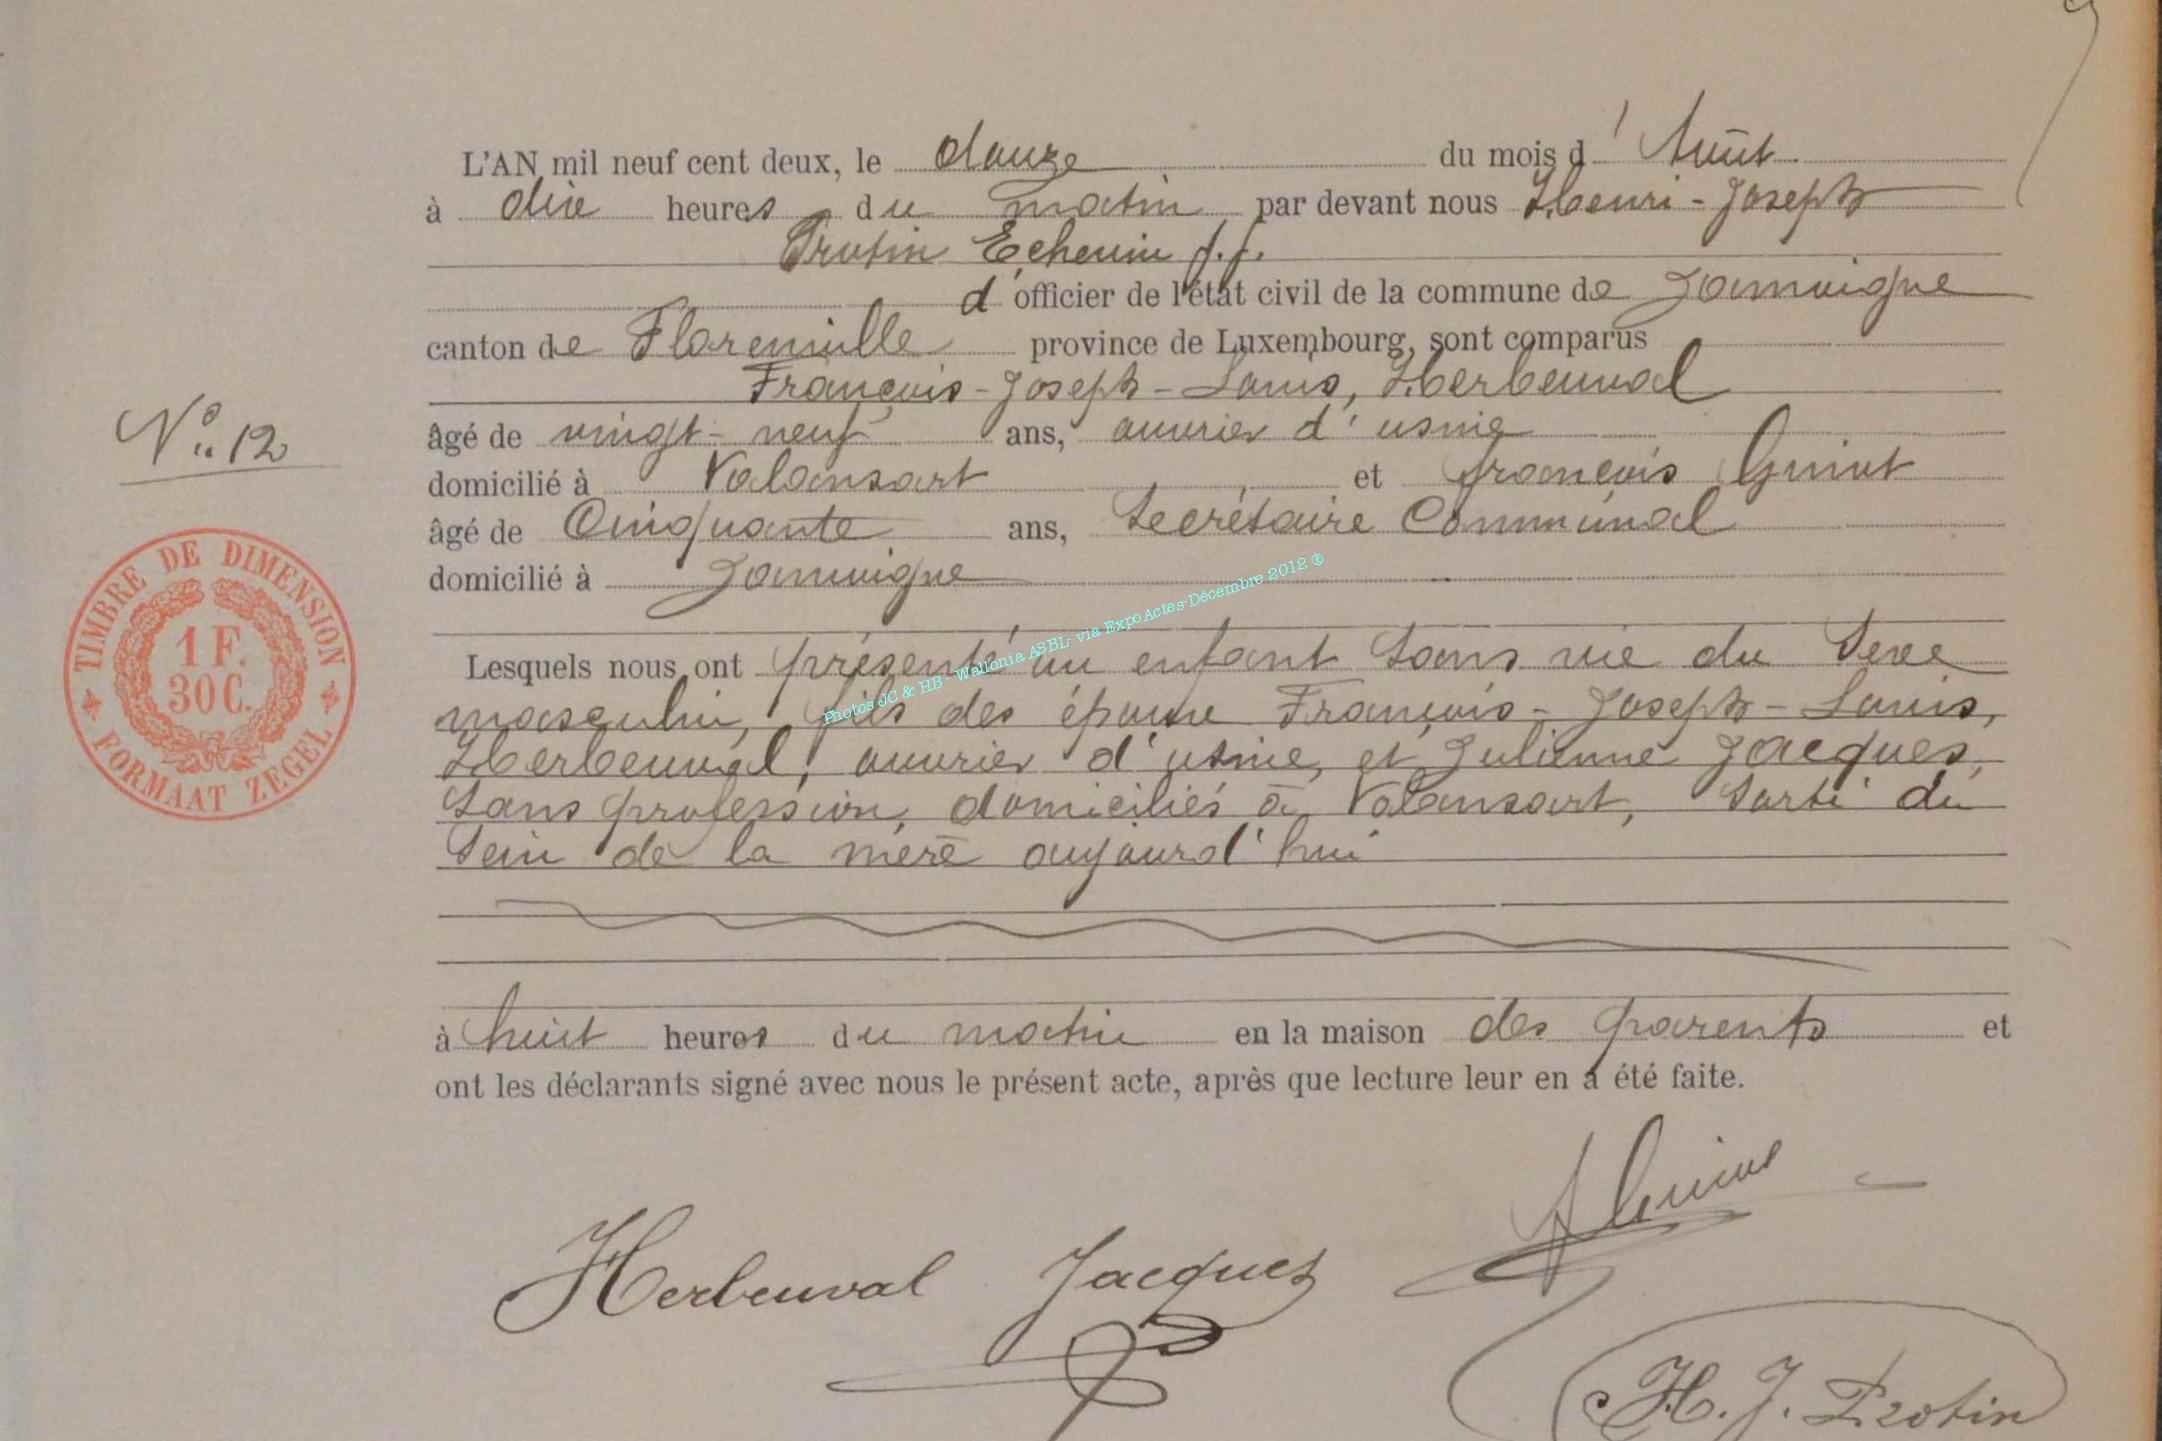 L'AN mil neuf cent deux, le douze du mois d'Août
à dix heures du matin par devant nous Henri-Joseph
Protin Echevin f.f.
d'officier de l'état civil de la commune de Jamoigne
canton de Florenville province de Luxembourg, sont comparus
François-Joseph-Louis, Herbeuval
N° 12
âgé de vingt-neuf ans, ouvrier d'usine
domicilié à Valansart et François Guiot
âgé de Cinquante ans, Secrétaire Communal
domicilié à Jamoigne
TIMBRE DE DIMENSION
1 F.
30 C.
FORMAAT ZEGEL
Photos JC & HB - Wallonia ASBL- via ExpoActes-Décembre 2012 ®
Lesquels nous ont présenté un enfant sans vie du sexe
masculin, fils des époux François-Joseph-Louis,
Herbeuval, ouvrier d'usine, et Julienne Jacques,
sans profession, domiciliés à Valansart, sorti du
sein de la mère aujourd'hui
à huit heures du matin en la maison des parents et
ont les déclarants signé avec nous le présent acte, après que lecture leur en a été faite.
Herbeuval Jacques
H. J. Protin